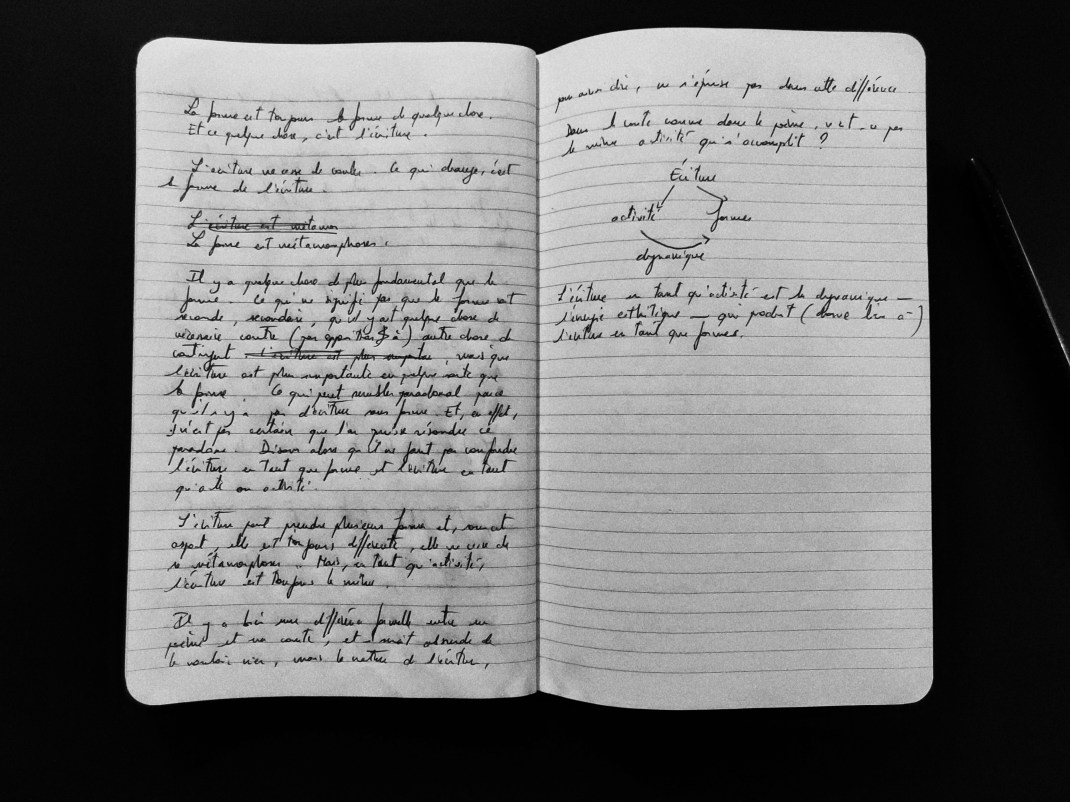 La forme est toujours la forme de quelque chose.
Et ce quelque chose, c'est l'écriture.
L'écriture ne cesse de couler. Ce qui change, c'est
la forme de l'écriture.
L'écriture est métamor
La forme est métamorphoses.
Il y a quelque chose de plus fondamental que la
forme. Ce qui ne signifie pas que la forme soit
seconde, secondaire, qu'il y ait quelque chose de
nécessaire contre (par opposition à) autre chose de
contingent l'écriture est plus importante, mais que
l'écriture est plus importante en quelque sorte que
la forme. Ce qui peut sembler paradoxal parce
qu'il n'y a pas d'écriture sans forme. Et, en effet,
il n'est pas certain que l'on puisse résoudre ce
paradoxe. Disons alors qu'il ne faut pas confondre
l'écriture en tant que forme et l'écriture en tant
qu'acte ou activité.
L'écriture peut prendre plusieurs formes et, sous cet
aspect, elle est toujours différente, elle ne cesse de
se métamorphoser. Mais, en tant qu'activité,
l'écriture est toujours la même.
Il y a bien une différence formelle entre un
poème et un conte, et il serait absurde de
le vouloir nier, mais la nature de l'écriture,
pour ainsi dire, ne s'épuise pas dans cette différence
Dans le conte comme dans le poème, n'est-ce pas
la même activité qui s'accomplit ?
Écriture
activité formes
dynamique
L'écriture en tant qu'activité est la dynamique —
l'énergie esthétique — qui produit (donne lieu à)
l'écriture en tant que formes.